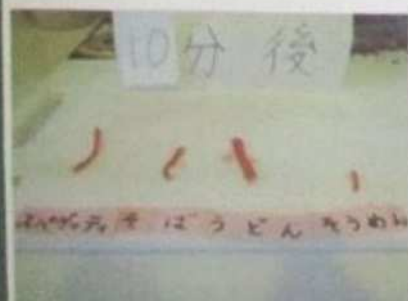 10分後
スパゲッティ そば うどん そうめん